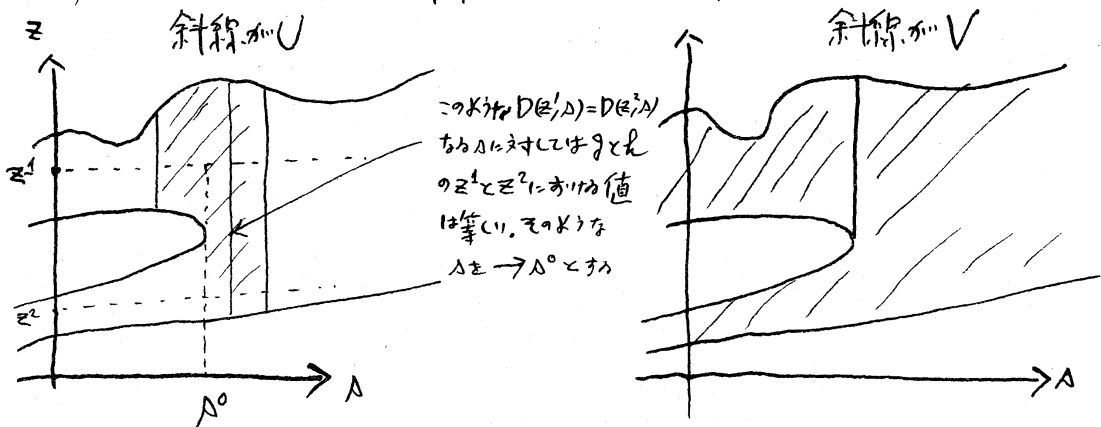 斜線がU
斜線がV
z
z¹
z²
s⁰
s
このような D(z¹,s)=D(z²,s)
なる s に対しては g と h
の z¹ と z² における値
は等しい。そのような
s を → s⁰ とする
s